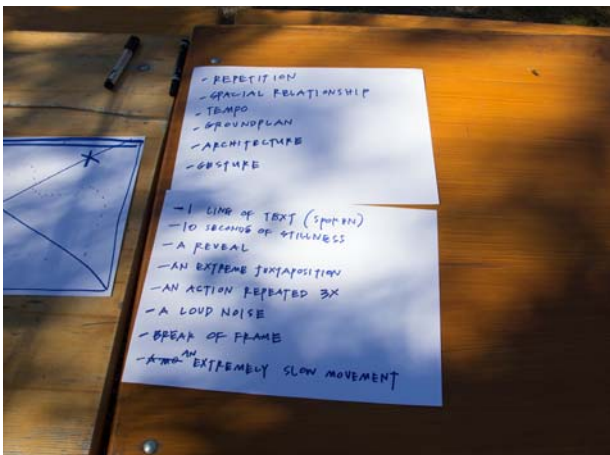 - REPETITION
- SPACIAL RELATIONSHIP
- TEMPO
- GROUNDPLAN
- ARCHITECTURE
- GESTURE
- 1 LINE OF TEXT (SPOKEN)
- 10 SECONDS OF STILLNESS
- A REVEAL
- AN EXTREME JUXTAPOSITION
- AN ACTION REPEATED 3X
- A LOUD NOISE
- BREAK OF FRAME
- AN EXTREMELY SLOW MOVEMENT